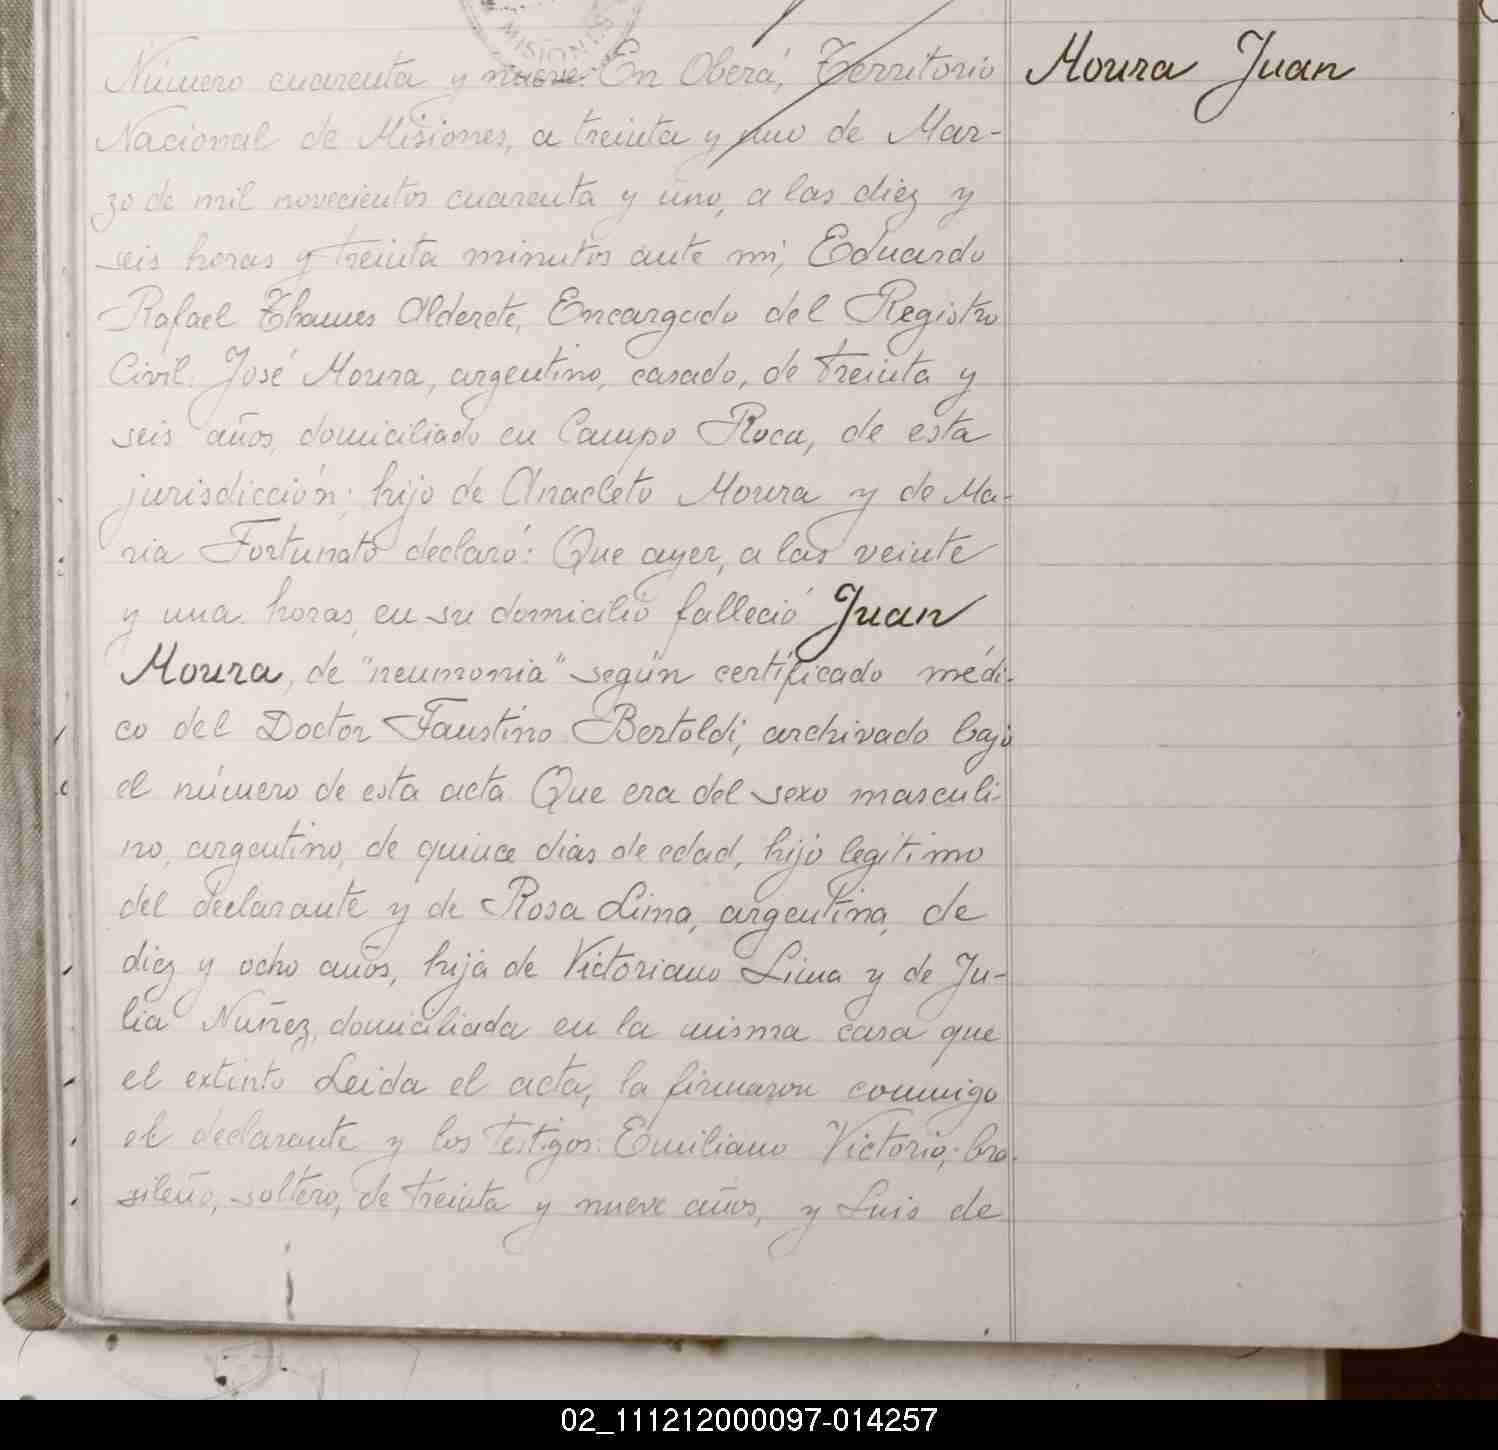 MISIONES
Número cuarenta y nueve. En Oberá, Territorio
Moura Juan
Nacional de Misiones, a treinta y uno de Mar-
zo de mil novecientos cuarenta y uno, a las diez y
seis horas y treinta minutos ante mí, Eduardo
Rafael Thames Alderete, Encargado del Registro
Civil. José Moura, argentino, casado, de treinta y
seis años, domiciliado en Campo Roca, de esta
jurisdicción; hijo de Anacleto Moura y de Ma-
ria Fortunato declaró: Que ayer, a las veinte
y una horas, en su domicilio falleció Juan
Moura, de "neumonia" según certificado médi-
co del Doctor Faustino Bertoldi, archivado bajo
el número de esta acta. Que era del sexo masculi-
no, argentino, de quince dias de edad, hijo legítimo
del declarante y de Rosa Lima, argentina, de
diez y ocho años, hija de Victoriano Lima y de Ju-
lia Nuñez, domiciliada en la misma casa que
el extinto Leida el acta, la firmaron conmigo
el declarante y los testigos: Emiliano Victorio, bra-
sileño, soltero, de treinta y nueve años, y Luis de
02_111212000097-014257